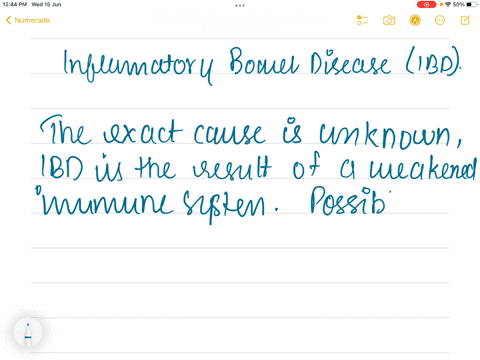 12:44 PM Wed 15 Jun
50%
Numerade
Inflammatory Bowel Disease (IBD).
The exact cause is unknown,
IBD is the result of a weakened
immune system. Possib